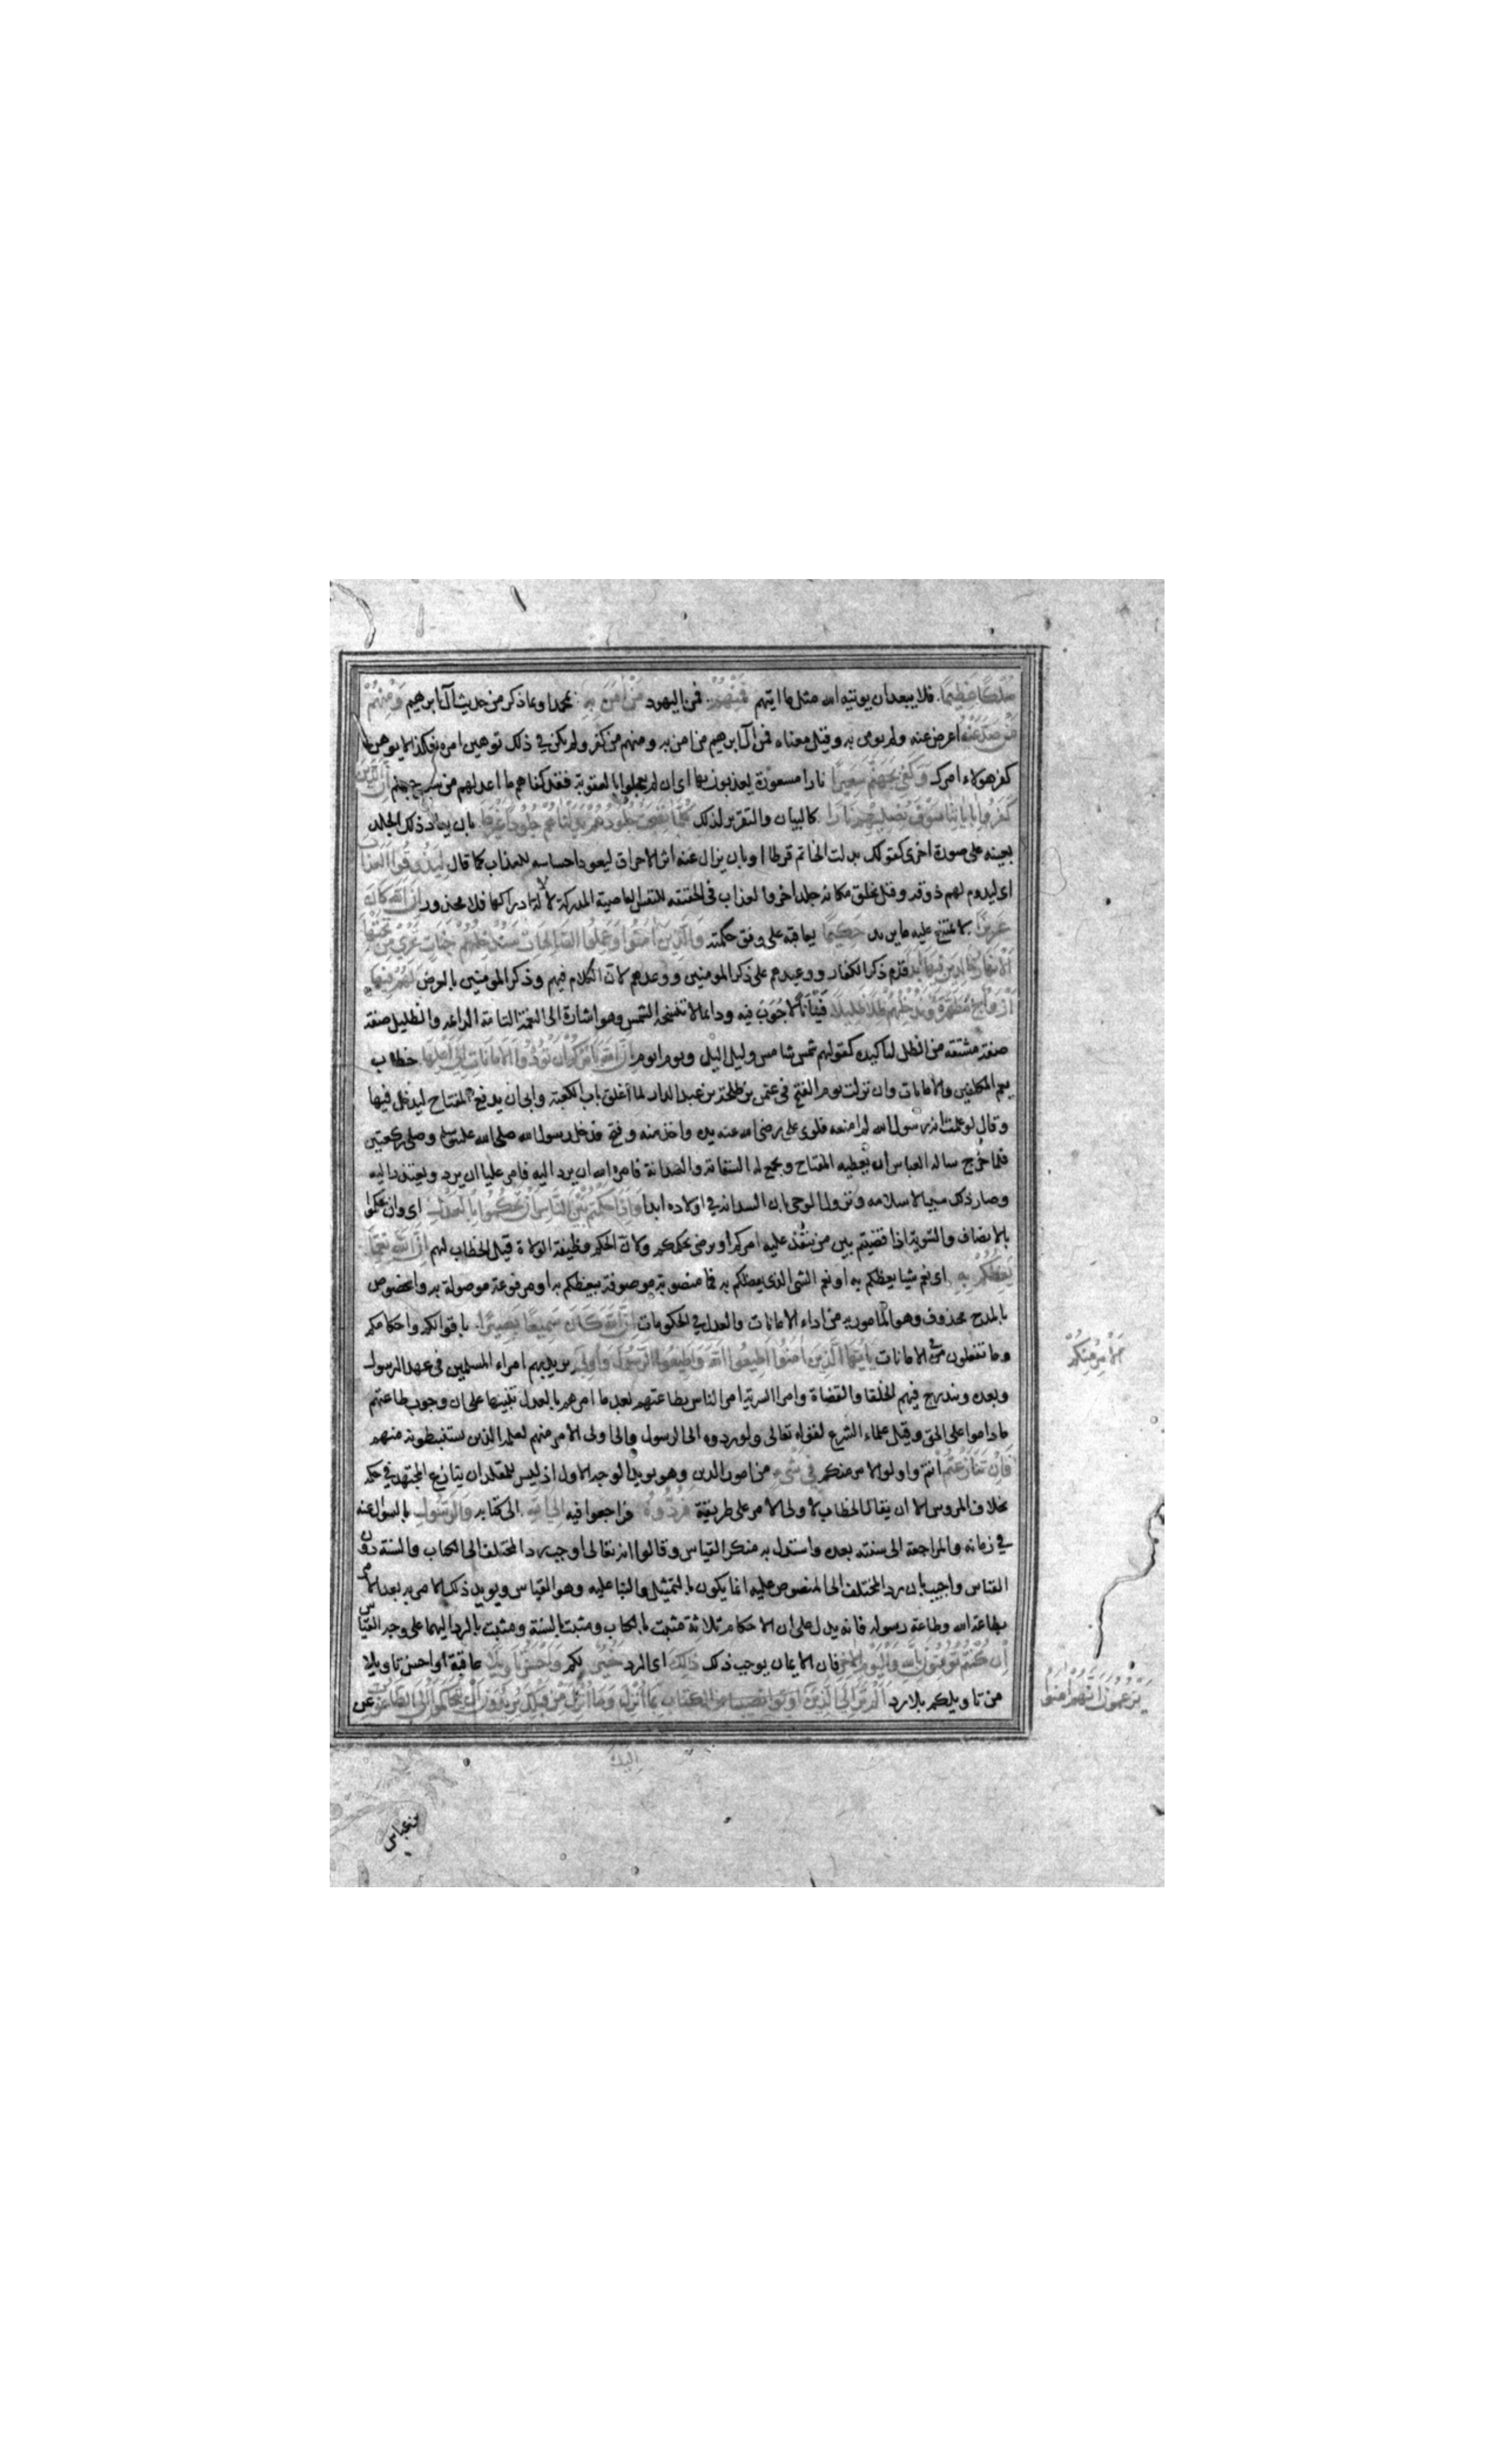 مُلْكًا عَظِيمًا فلا يبعد ان يوتيه الله مثل ما اتيهم فَمِنْهُمْ فمن اليهود مَنْ اٰمَنَ بِهِ بمحمد او بما ذكر من حديث آل ابرهيم وَمِنْهُمْ
مَنْ صَدَّ عَنْهُ اعرض عنه ولم يومن به وقيل معناه فمن آل ابرهيم من امن به ومنهم من كفر ولم يكن في ذلك توهين امره فكذا لا يوهن
كفر هولاء امرك وَكَفَى بِجَهَنَّمَ سَعِيرًا نارا مسعورة يعذبون بها اى ان لم يعجلوا بالعقوبة فقد كفاهم ما اعد لهم من سعير جهنم اِنَّ الَّذِينَ
كَفَرُوا بِاٰيَاتِنَا سَوْفَ نُصْلِيهِمْ نَارًا كالبيان والتقرير لذلك كُلَّمَا نَضِجَتْ جُلُودُهُمْ بَدَّلْنَاهُمْ جُلُودًا غَيْرَهَا بان يعاد ذلك الجلد
بعينه على صورة اخرى كقولك بدلت الخاتم قرطا او بان يزال عنه اثر الاحراق ليعود احساسه للعذاب كما قال لِيَذُوقُوا الْعَذَابَ
اى ليدوم لهم ذوقه وقيل يخلق مكانه جلد اخر والعذاب فى الحقيقه للنفس العاصية المدركة لا لة ادراكها فلا محذور اِنَّ اللّٰهَ كَانَ
عَزِيزًا لا يمتنع عليه ما يريد حَكِيمًا يعاقب على وفق حكمته وَالَّذِينَ اٰمَنُوا وَعَمِلُوا الصَّالِحَاتِ سَنُدْخِلُهُمْ جَنَّاتٍ تَجْرِي مِنْ تَحْتِهَا
الْاَنْهَارُ خَالِدِينَ فِيهَا اَبَدًا قدم ذكر الكفار ووعيدهم على ذكر المومنين ووعدهم لان الكلام فيهم وذكر المومنين بالعرض لَهُمْ فِيهَا
اَزْوَاجٌ مُطَهَّرَةٌ وَنُدْخِلُهُمْ ظِلًّا ظَلِيلًا فينانا لا جوب فيه ودائما لا تنسخه الشمس وهو اشارة الى النعمة التامة الدائمه والظليل صفة
صفة مشتقه من الظل لتاكيده كقولهم شمس شامس وليل اليل ويوم ايوم اِنَّ اللّٰهَ يَاْمُرُكُمْ اَنْ تُؤَدُّوا الْاَمَانَاتِ اِلَى اَهْلِهَا خطاب
يعم المكلفين والامانات وان نزلت يوم الفتح فى عثمن بن طلحة بن عبد الدار لما اغلق باب الكعبة وابى ان يدفع المفتاح ليدخل فيها
وقال لو علمت انه رسول الله لم امنعه فلوى على رضى الله عنه يده واخذ منه وفتح فدخل رسول الله صلى الله عليه وسلم وصلى ركعتين
فلما خرج ساله العباس ان يعطيه المفتاح ويجمع له السقاية والسدانة فامره الله ان يرد اليه فامر عليا ان يرد ويعتذر اليه
وصار ذلك سببا لاسلامه ونزول الوحى بان السدانه في اولاده ابدا وَاِذَا حَكَمْتُمْ بَيْنَ النَّاسِ اَنْ تَحْكُمُوا بِالْعَدْلِ اى وان تحكموا
بالانصاف والسوية اذا قضيتم بين من ينفذ عليه امركم او يرضى بحكمكم ولان الحكم وظيفة الولاة قيل الخطاب لهم اِنَّ اللّٰهَ نِعِمَّا
يَعِظُكُمْ بِهِ اى نعم شيا يعظكم به او نعم الشى الذى يعظكم به فما منصوبة موصوفة بيعظكم به او مرفوعة موصولة به والمخصوص
بالمدح محذوف وهو المامور به من اداء الامانات والعدل في الحكومات اِنَّ اللّٰهَ كَانَ سَمِيعًا بَصِيرًا باقوالكم واحكامكم
وما تفعلون في الامانات يَا اَيُّهَا الَّذِينَ اٰمَنُوا اَطِيعُوا اللّٰهَ وَاَطِيعُوا الرَّسُولَ وَاُولِي يريد بهم امراء المسلمين فى عهد الرسول
الْاَمْرِ مِنْكُمْ
وبعده ويندرج فيهم الخلفا والقضاة وامرا السرية امر الناس بطاعتهم بعد ما امرهم بالعدل تنبيها على ان وجوب طاعتهم
ما داموا على الحق وقيل علماء الشرع لقوله تعالى ولو ردوه الى الرسول والى اولى الامر منهم لعلمه الذين يستنبطونه منهم
فَاِنْ تَنَازَعْتُمْ انتم واولوا الامر منكم فِي شَيْءٍ من امور الدين وهو يويد الوجه الاول اذ ليس للمقلد ان ينازع المجتهد في حكمه
بخلاف المروس الا ان يقال الخطاب لاولى الامر على طريقة فَرُدُّوهُ فراجعوا فيه اِلَى اللّٰهِ الى كتابه وَالرَّسُولِ بالسوال عنه
في زمانه والمراجعة الى سنته بعده واستدل به منكر القياس وقالوا انه تعالى اوجب رد المختلف الى الكتاب والسنة دون
القياس واجيب بان رد المختلف الى المنصوص عليه انما يكون بالتمثيل والبنا عليه وهو القياس ويويد ذلك الامر به بعد الامر
بطاعة الله وطاعة رسوله فانه يدل على ان الاحكام ثلاثة مثبت بالكتاب ومثبت بالسنة ومثبت بالرد اليهما على وجه القياس
اِنْ كُنْتُمْ تُؤْمِنُونَ بِاللّٰهِ وَالْيَوْمِ الْاٰخِرِ فان الايمان يوجب ذلك ذٰلِكَ اى الرد خَيْرٌ لكم وَاَحْسَنُ تَاْوِيلًا عاقبة او احسن تاويلا
من تاويلكم بلا رد اَلَمْ تَرَ اِلَى الَّذِينَ
يَزْعُمُونَ اَنَّهُمْ اٰمَنُوا
بِمَا اُنْزِلَ وَمَا اُنْزِلَ مِنْ قَبْلِكَ يُرِيدُونَ اَنْ يَتَحَاكَمُوا اِلَى الطَّاغُوتِ عن
اليك
بن عباس